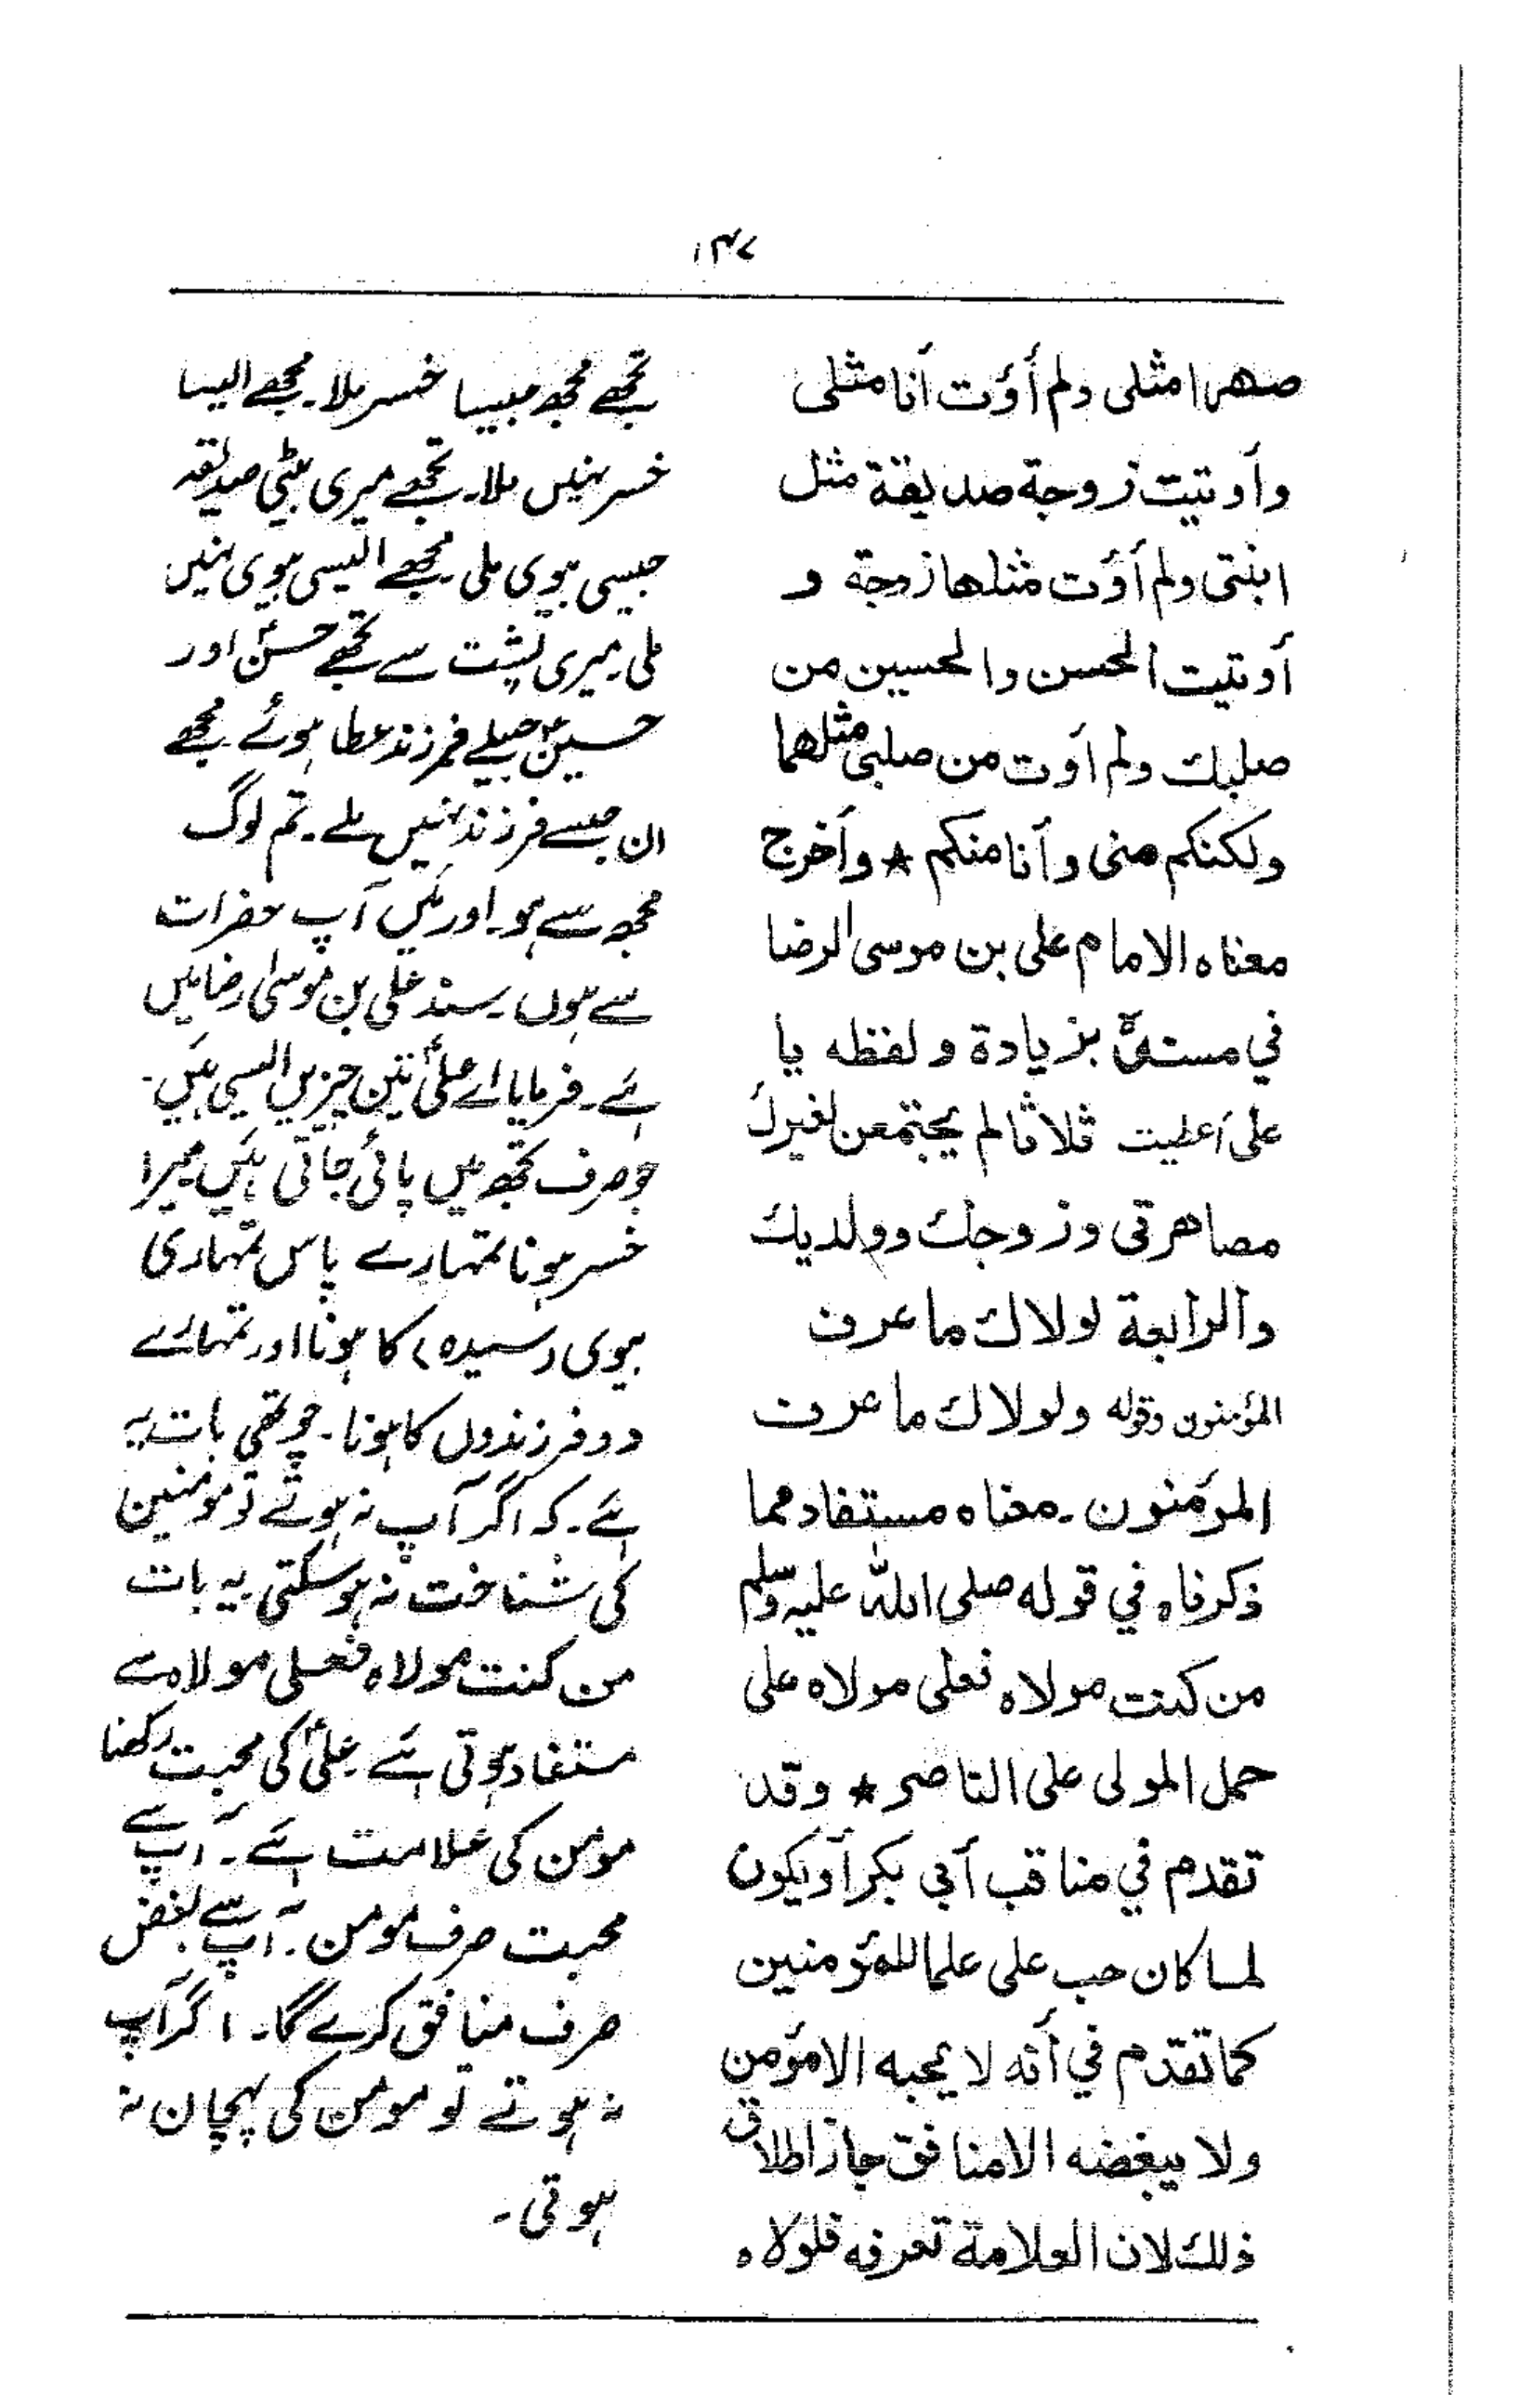 ۱۴۷
صهرا مثلى ولم أوت أنا مثلى
وأوتيت زوجة صديقة مثل
ابنتى ولم أوت مثلها زوجة و
أوتيت الحسن والحسين من
صلبك ولم أوت من صلبى مثلهما
ولكنكم منى وأنا منكم ★ وأخرج
معناه الامام على بن موسى الرضا
في مسنده بزيادة ولفظه يا
على أعطيت ثلاثا لم يجتمعن لغيرك
مصاهرتى وزوجك وولديك
والرابعة لولاك ما عرف
المؤمنون وقوله ولولاك ما عرف
المؤمنون۔ معناه مستفاد مما
ذكرناه في قوله صلى الله عليه وسلم
من كنت مولاه فعلى مولاه على
حمل المولى على الناصر ★ وقد
تقدم في مناقب أبي بكر أو يكون
لما كان حب على علما للمؤمنين
كما تقدم في أنه لا يحبه الا مؤمن
ولا يبغضه الا منافق جاز اطلاق
ذلك لان العلامة تعرفه فلولاه
تجھے مجھ جیسا خسر ملا۔ مجھے ایسا
خسر نہیں ملا۔ تجھے میری بیٹی صدیقہ
جیسی بیوی ملی۔ مجھے ایسی بیوی نہیں
ملی۔ میری پشت سے تجھے حسنؑ اور
حسینؑ جیسے فرزند عطا ہوئے۔ مجھے
ان جیسے فرزند نہیں ملے۔ تم لوگ
مجھ سے ہو۔ اور میں آپ حضرات
سے ہوں۔ سند علی بن موسیٰ رضا میں
ہے۔ فرمایا اے علیؑ تین چیزیں ایسی ہیں۔
جو صرف تجھ میں پائی جاتی ہیں میرا
خسر ہونا تمہارے پاس تمہاری
بیوی (سیدہ) کا ہونا اور تمہارے
دو فرزندوں کا ہونا۔ چوتھی بات یہ
ہے۔ کہ اگر آپ نہ ہوتے تو مومنین
کی شناخت نہ ہو سکتی یہ بات
من کنت مولاہ فعلی مولاہ سے
مستفاد ہوتی ہے۔ علیؑ کی محبت رکھنا
مومن کی علامت ہے۔ آپ سے
محبت صرف مومن۔ آپ سے بغض
صرف منافق کرے گا۔ اگر آپ
نہ ہوتے تو مومن کی پہچان نہ
ہوتی۔